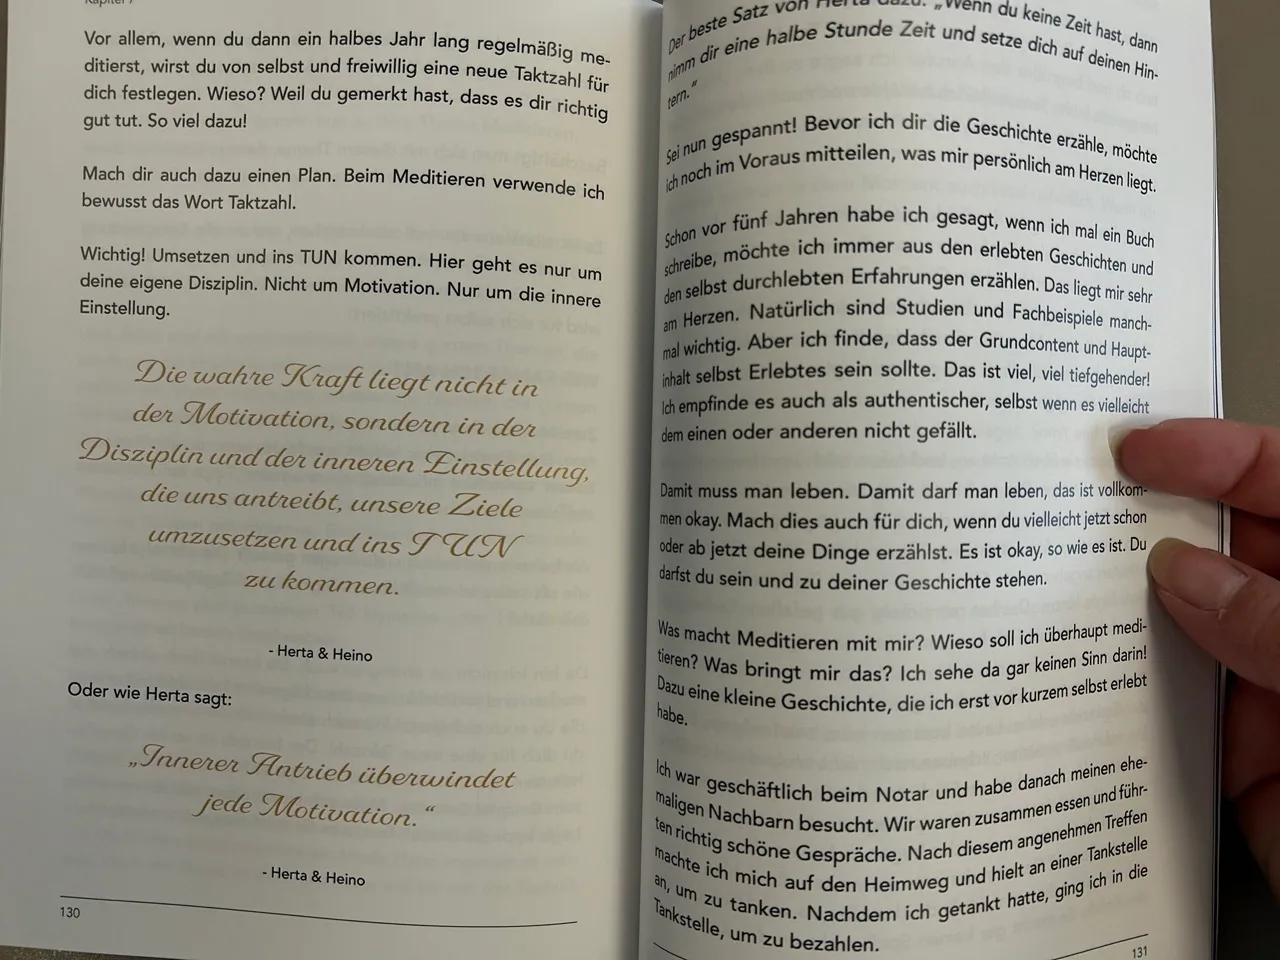 Kapitel 7
Vor allem, wenn du dann ein halbes Jahr lang regelmäßig me-
ditierst, wirst du von selbst und freiwillig eine neue Taktzahl für
dich festlegen. Wieso? Weil du gemerkt hast, dass es dir richtig
gut tut. So viel dazu!
Mach dir auch dazu einen Plan. Beim Meditieren verwende ich
bewusst das Wort Taktzahl.
Wichtig! Umsetzen und ins TUN kommen. Hier geht es nur um
deine eigene Disziplin. Nicht um Motivation. Nur um die innere
Einstellung.
Die wahre Kraft liegt nicht in
der Motivation, sondern in der
Disziplin und der inneren Einstellung,
die uns antreibt, unsere Ziele
umzusetzen und ins TUN
zu kommen.
- Herta & Heino
Oder wie Herta sagt:
„Innerer Antrieb überwindet
jede Motivation.“
- Herta & Heino
130
Der beste Satz von Herta dazu: „Wenn du keine Zeit hast, dann
nimm dir eine halbe Stunde Zeit und setze dich auf deinen Hin-
tern.“
Sei nun gespannt! Bevor ich dir die Geschichte erzähle, möchte
ich noch im Voraus mitteilen, was mir persönlich am Herzen liegt.
Schon vor fünf Jahren habe ich gesagt, wenn ich mal ein Buch
schreibe, möchte ich immer aus den erlebten Geschichten und
den selbst durchlebten Erfahrungen erzählen. Das liegt mir sehr
am Herzen. Natürlich sind Studien und Fachbeispiele manch-
mal wichtig. Aber ich finde, dass der Grundcontent und Haupt-
inhalt selbst Erlebtes sein sollte. Das ist viel, viel tiefgehender!
Ich empfinde es auch als authentischer, selbst wenn es vielleicht
dem einen oder anderen nicht gefällt.
Damit muss man leben. Damit darf man leben, das ist vollkom-
men okay. Mach dies auch für dich, wenn du vielleicht jetzt schon
oder ab jetzt deine Dinge erzählst. Es ist okay, so wie es ist. Du
darfst du sein und zu deiner Geschichte stehen.
Was macht Meditieren mit mir? Wieso soll ich überhaupt medi-
tieren? Was bringt mir das? Ich sehe da gar keinen Sinn darin!
Dazu eine kleine Geschichte, die ich erst vor kurzem selbst erlebt
habe.
Ich war geschäftlich beim Notar und habe danach meinen ehe-
maligen Nachbarn besucht. Wir waren zusammen essen und führ-
ten richtig schöne Gespräche. Nach diesem angenehmen Treffen
machte ich mich auf den Heimweg und hielt an einer Tankstelle
an, um zu tanken. Nachdem ich getankt hatte, ging ich in die
Tankstelle, um zu bezahlen.
131